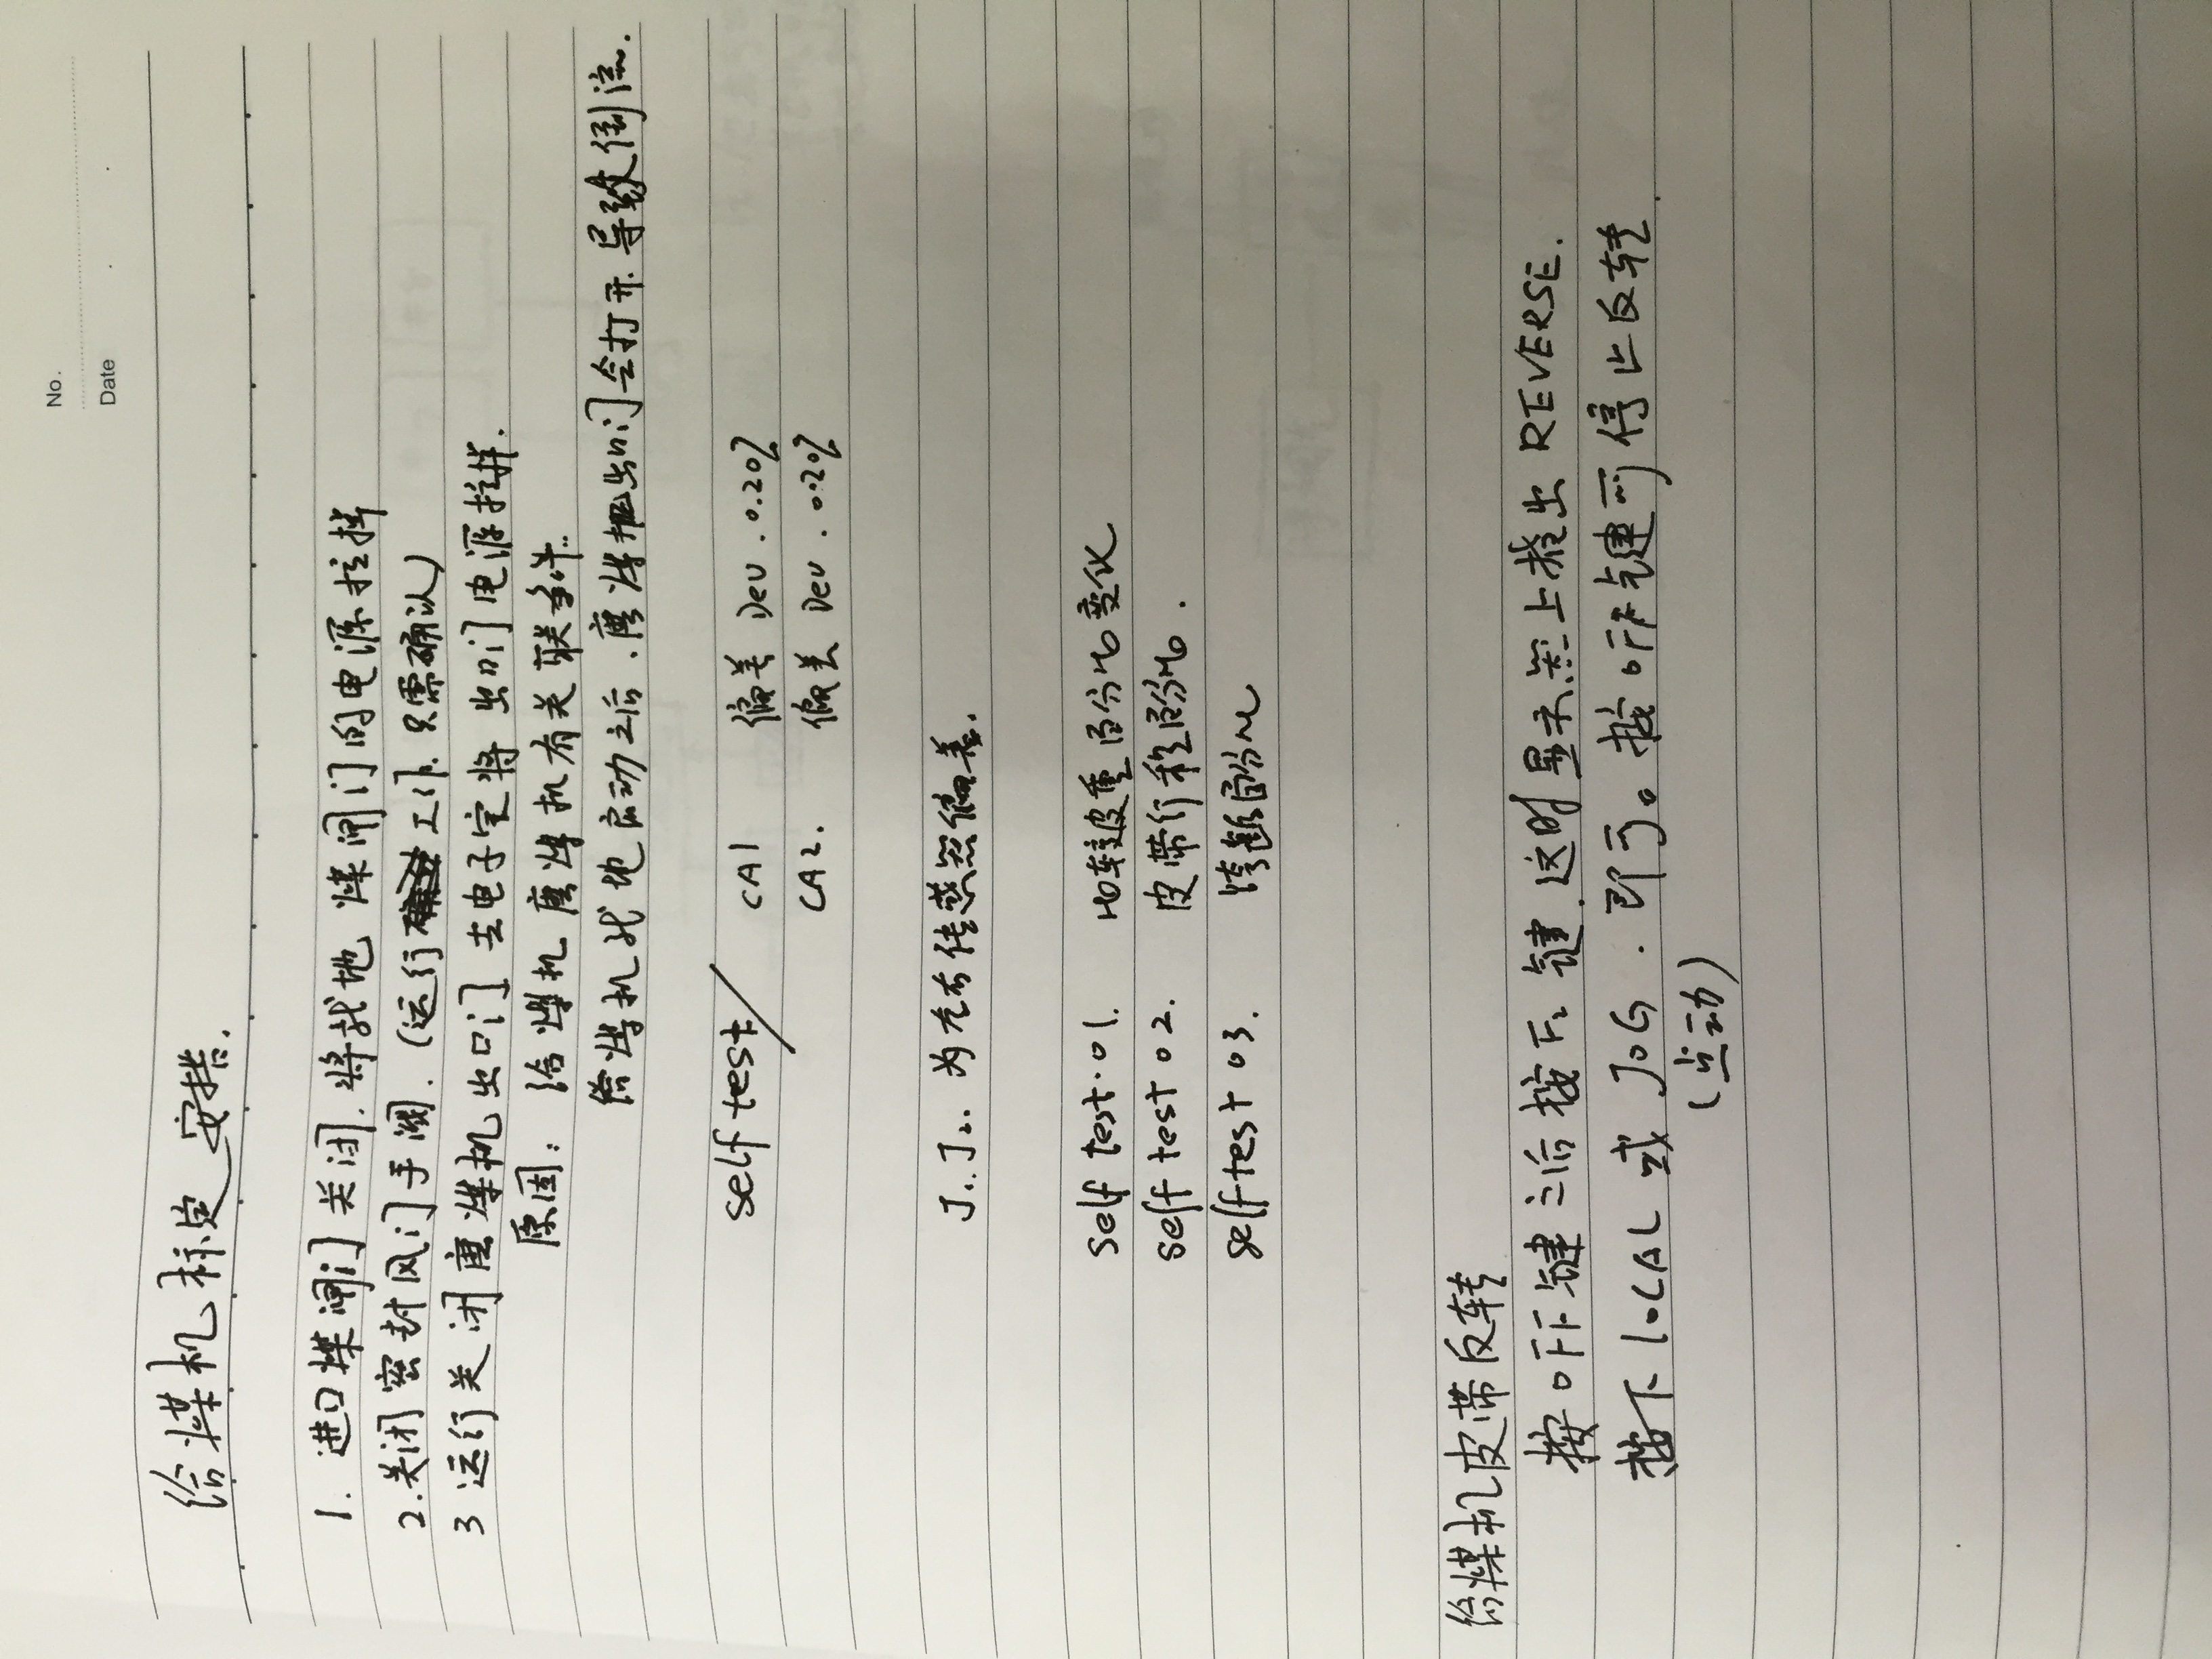 No.
Date
给煤机标定 安措.
1. 进口煤闸门关闭. 将就地 煤闸门的电源拉掉
2. 关闭密封风门手阀. (运行 工作. 只需确认)
3 运行关闭磨煤机出口门 去电子室将 出口门电源拉掉.
原因: 给煤机 磨煤机有关联条件.
给煤机就地启动之后. 磨煤机出口门会打开. 导致倒流.
self test/ CA1 偏差 Dev . 0.20%
CA2. 偏差 Dev . 0.20%
J1. J2. 为左右传感器偏差.
self test. 01. 比较皮重百分比变化
self test 02. 皮带行程百分比.
self test 03. 跨距百分比
给煤机皮带反转
按OFF键之后按F2键. 这时显示器上提出 REVERSE.
按下 LOCAL 或 JOG . 即可。按OFF键可停止反转.
(点动)